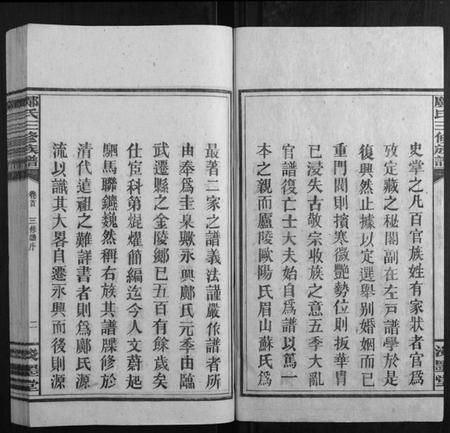 鄺氏三修族譜
史掌之凡百官族姓有家狀者官爲
攷定藏之秘閣副在左戸譜學於是
復興然止據以定選舉别婚姻而已
重門閥則擯寒微艷勢位則扳華冑
已浸失古敬宗收族之意五季大亂
官譜復亡士大夫始自爲譜以篤一
本之親而廬陵歐陽氏眉山蘇氏爲
最著二家之譜義法謹嚴依譜者所
由奉爲圭臬歟永興鄺氏元季由臨
武遷縣之金陵鄉已五百有餘歲矣
仕宦科第焜燿簡編迄今人文蔚起
駟馬聯鑣巍然稱右族其譜牒修於
清代遠祖之難詳書者則爲鄺氏源
流以識其大畧自遷永興而後則源
鄺氏三修族譜
卷首
三修譜序
二
堂